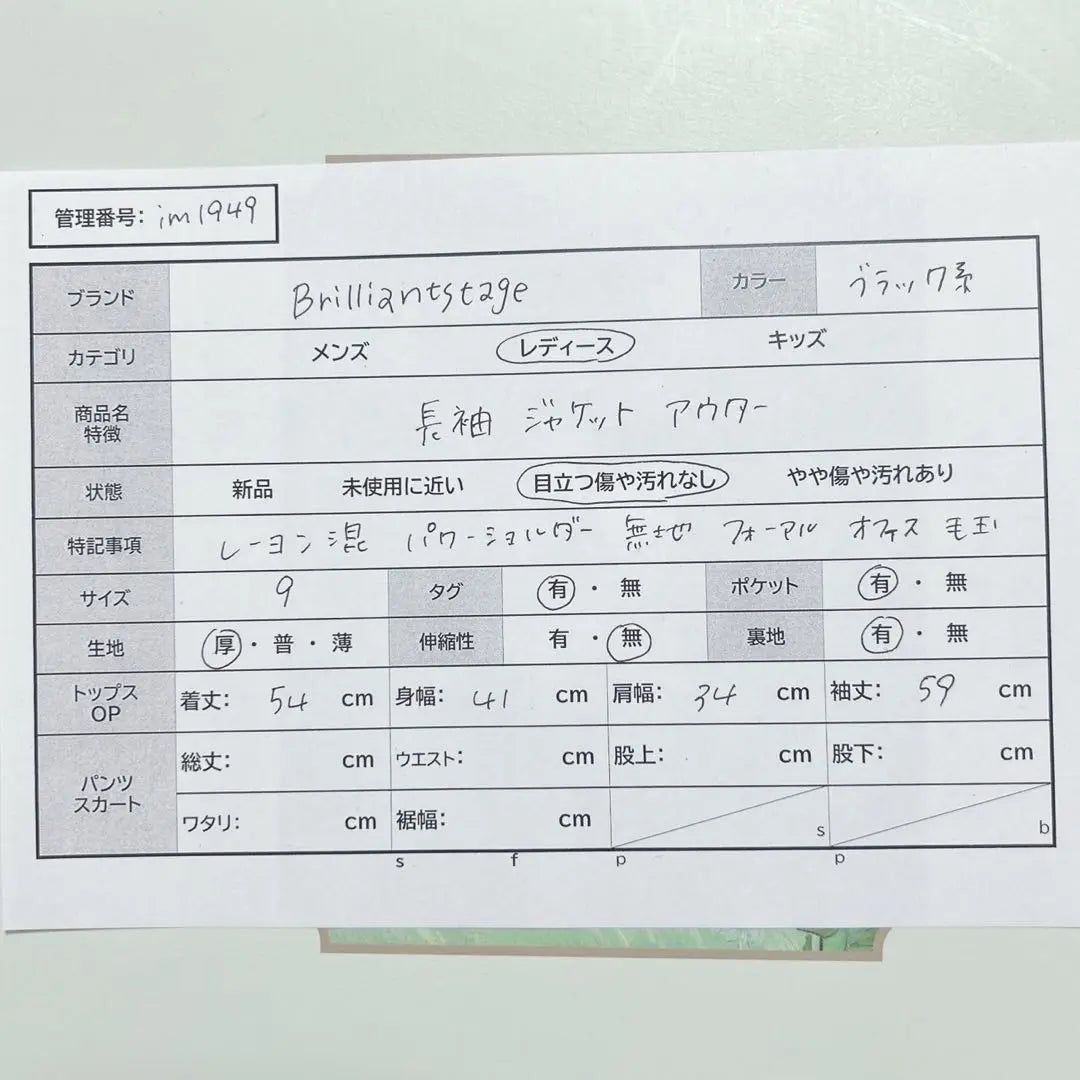 管理番号: im1949
ブランド Brilliantstage カラー ブラック系
カテゴリ メンズ レディース キッズ
商品名 特徴 長袖 ジャケット アウター
状態 新品 未使用に近い 目立つ傷や汚れなし やや傷や汚れあり
特記事項 レーヨン混 パワーショルダー 無地 フォーマル オフィス 毛玉
サイズ 9 タグ 有・無 ポケット 有・無
生地 厚・普・薄 伸縮性 有・無 裏地 有・無
トップス OP 着丈: 54 cm 身幅: 41 cm 肩幅: 34 cm 袖丈: 59 cm
パンツ スカート 総丈: cm ウエスト: cm 股上: cm 股下: cm
ワタリ: cm 裾幅: cm s b
s f p p